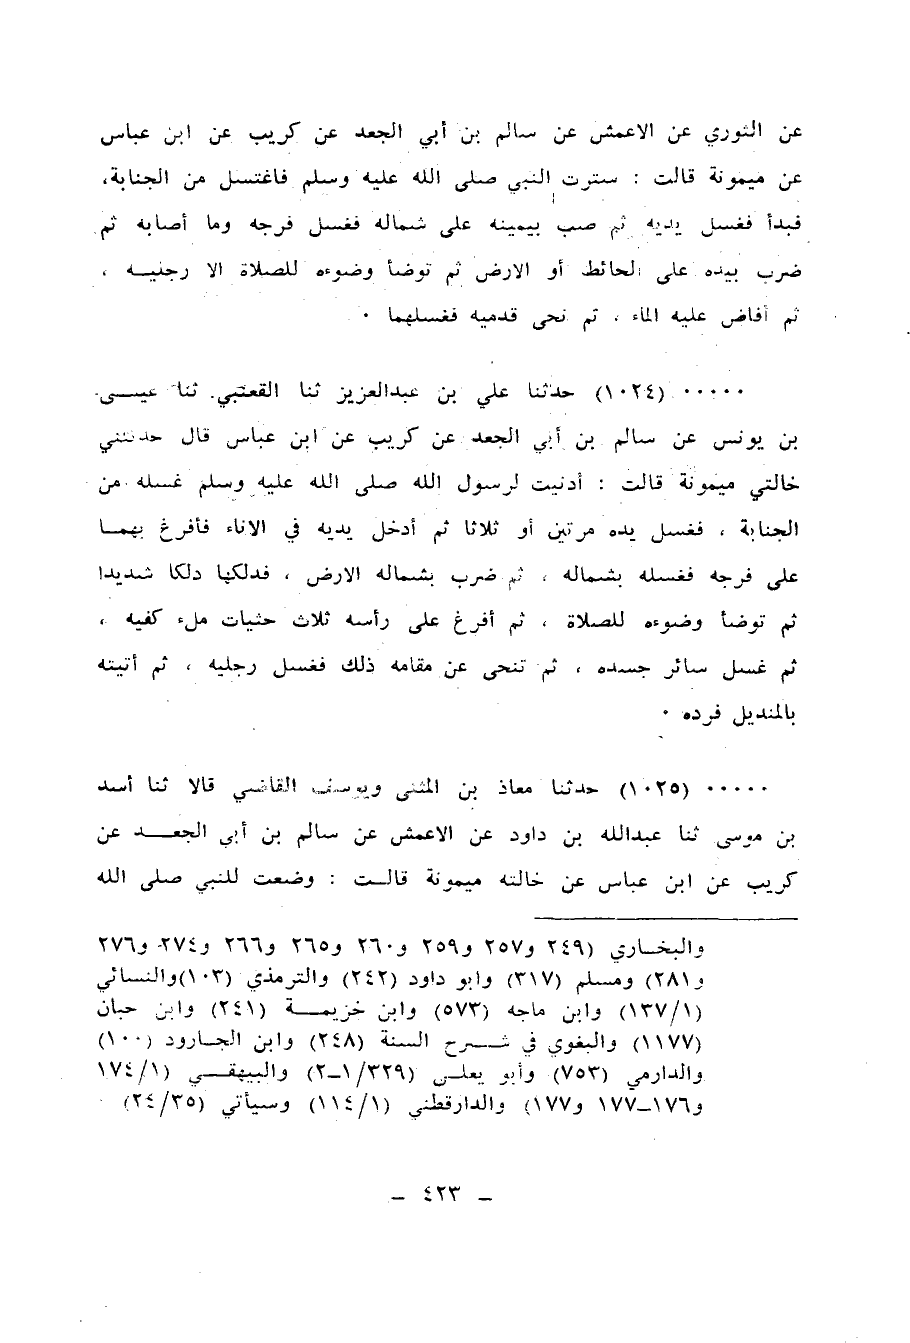 عن الثوري عن الاعمش عن سالم بن أبي الجعد عن كريب عن ابن عباس
عن ميمونة قالت : سترت النبي صلى الله عليه وسلم فاغتسل من الجنابة،
فبدأ فغسل يديه ثم صب بيمينه على شماله فغسل فرجه وما أصابه ثم
ضرب بيده على الحائط أو الارض ثم توضأ وضوءه للصلاة الا رجليــه ،
ثم أفاض عليه الماء ، ثم نحى قدميه فغسلهما ٠
٠٠٠٠٠ (١٠٢٤) حدثنا علي بن عبدالعزيز ثنا القعنبي ثنا عيســى
بن يونس عن سالم بن أبي الجعد عن كريب عن ابن عباس قال حدثتني
خالتي ميمونة قالت : أدنيت لرسول الله صلى الله عليه وسلم غسله من
الجنابة ، فغسل يده مرتين أو ثلاثا ثم أدخل يديه في الاناء فأفرغ بهمــا
على فرجه فغسله بشماله ، ثم ضرب بشماله الارض ، فدلكها دلكا شديدا
ثم توضأ وضوءه للصلاة ، ثم أفرغ على رأسه ثلاث حثيات ملء كفيه ،
ثم غسل سائر جسده ، ثم تنحى عن مقامه ذلك فغسل رجليه ، ثم أتيته
بالمنديل فرده ٠
٠٠٠٠٠ (١٠٢٥) حدثنا معاذ بن المثنى ويوسف القاضي قالا ثنا أسد
بن موسى ثنا عبدالله بن داود عن الاعمش عن سالم بن أبي الجعــد عن
كريب عن ابن عباس عن خالته ميمونة قالــت : وضعت للنبي صلى الله
والبخــاري (٢٤٩ و٢٥٧ و٢٥٩ و٢٦٠ و٢٦٥ و٢٦٦ و٢٧٤ و٢٧٦
و٢٨١) ومسلم (٣١٧) وابو داود (٢٤٢) والترمذي (١٠٣) والنسائي
(١٣٧/١) وابن ماجه (٥٧٣) وابن خزيمــة (٢٤١) وابن حبان
(١١٧٧) والبغوي في شــرح السنة (٢٤٨) وابن الجــارود (١٠٠)
والدارمي (٧٥٣) وأبو يعلــى (٣٢٩/١ـ٢) والبيهقــي (١٧٤/١
و١٧٦ـ١٧٧ و١٧٧) والدارقطني (١١٤/١) وسيأتي (٢٤/٣٥) ٠
ـ ٤٢٣ ـ